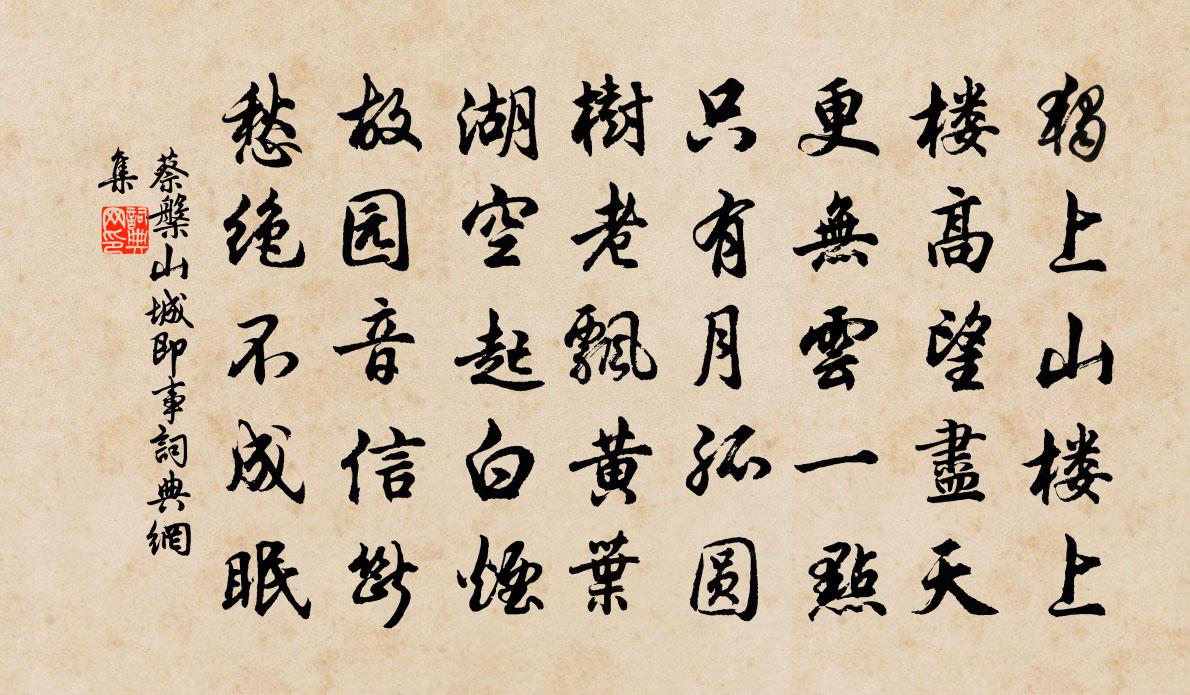 独上山楼上
楼高望盡天
更無雲一點
只有月孤圆
樹老飄黄葉
湖空起白煙
故园音信断
愁绝不成眠
蔡槃山城即事詞典網
集
詞典
网印